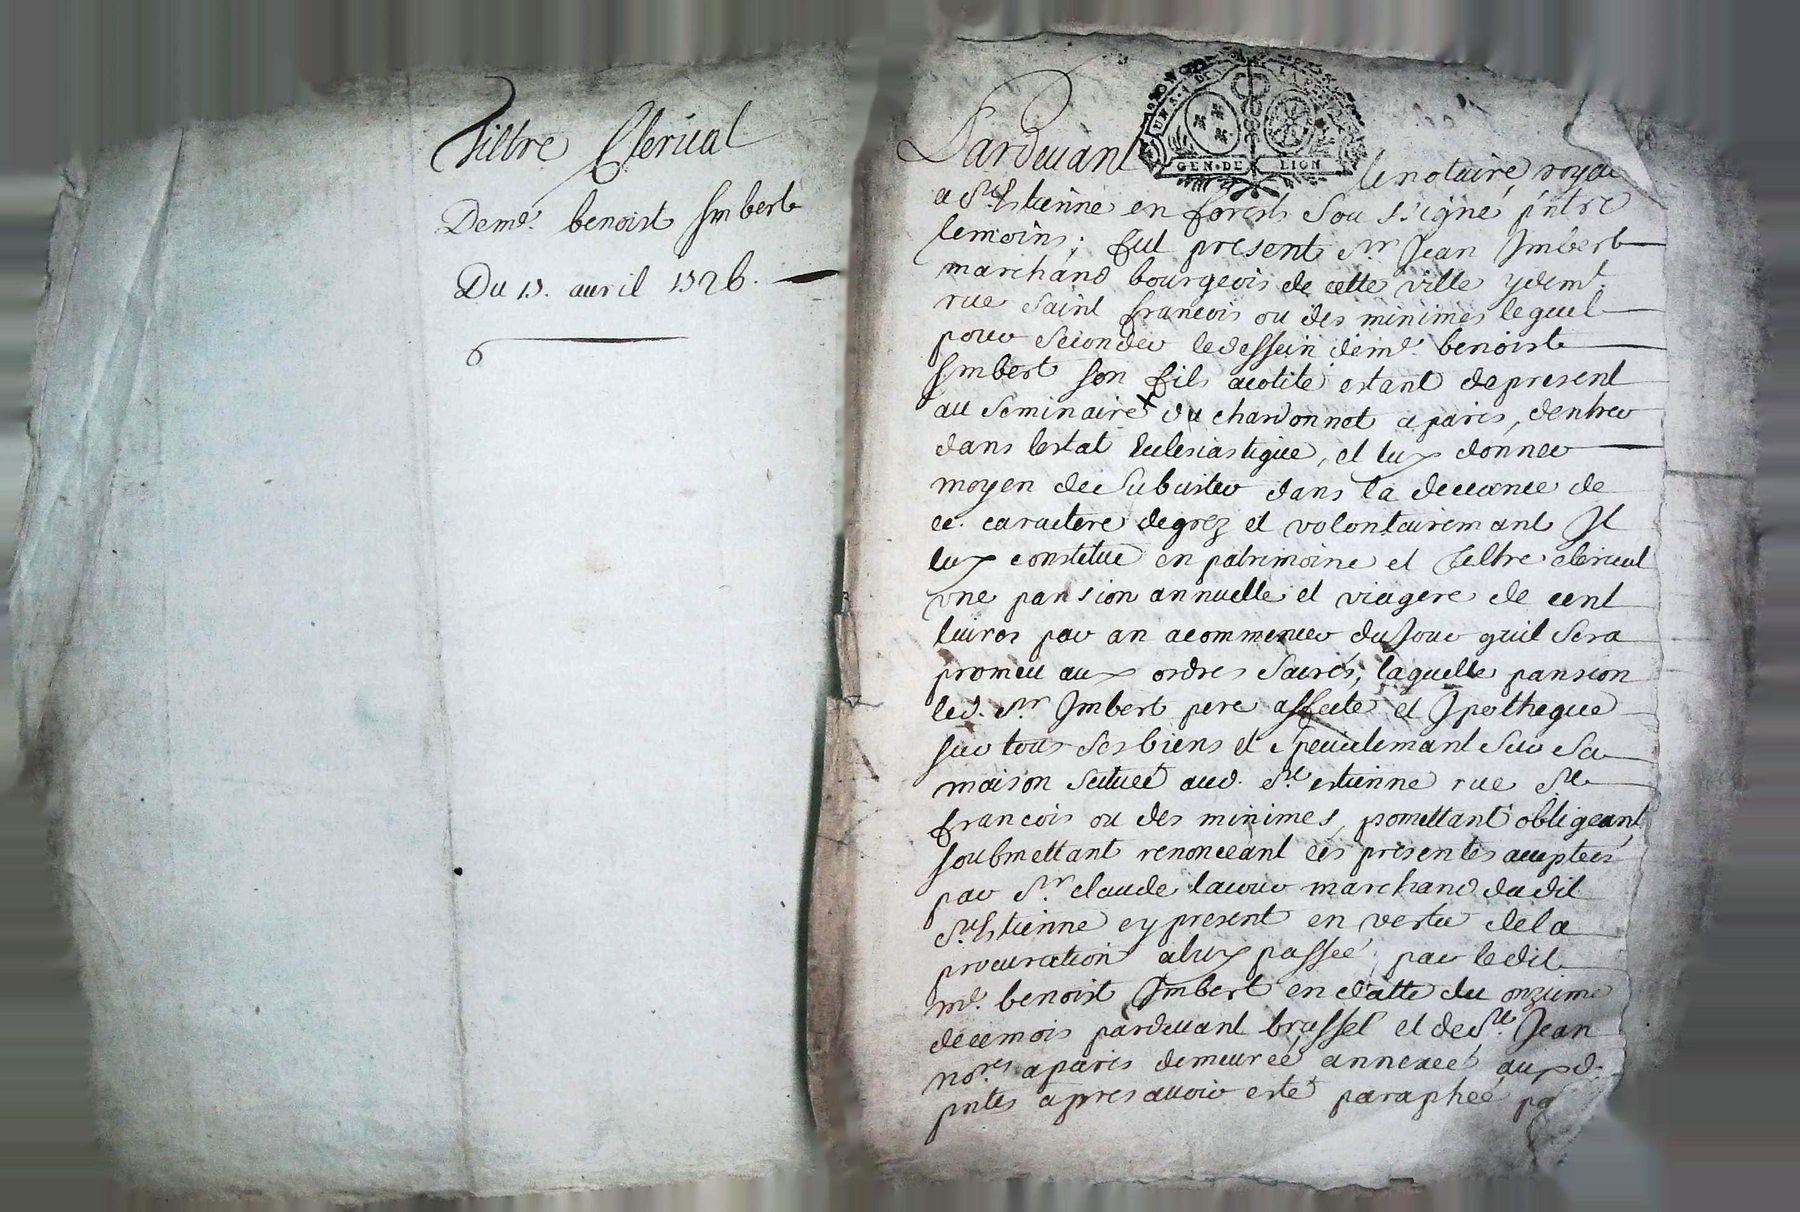 Tiltre Clerical
De md. benoist Imbert
Du 15. auril 1526.
UN S. 4 D.
GEN. DE LION
Pardeuant le notaire royal
a St. Estienne en forests sou ssigné p'ntz
temoins; fut present Sr. Jean Imbert
marchand bourgeois de cette ville y demt.
rue saint francois ou des minimes lequel
pour seconder le dessein de md. benoist
Imbert son fils acolite estant de present
au seminaire du chardonnet a paris, d'entrer
dans lestat Eclesiastique, et luy donner
moyen de Subsister dans la decence de
ce caractere de grez et volontairemant Il
luy constitue en patrimoine et tiltre clerical
vne pansion annuelle et viagere de cent
liures par an a commencer du Jour quil sera
promeu aux ordres sacrés, laquelle pansion
led. Sr. Imbert pere affecte et Ipotheque
sur tous ses biens et specialemant sur sa
maison scituee aud. St. estienne rue St.
francois ou des minimes, promettant obligeant,
soubmettant renonceant ces presentes acceptees
par Sr. claude lacour marchand du dit
St. Estienne cy present en vertu de la
procuration a luy passée par le dit
md. benoist Imbert en datte du onzieme
de ce mois pardeuant brussel et de St. Jean
nores. a paris demeurée annexée aux d.
pntes apres auoir esté paraphée pa